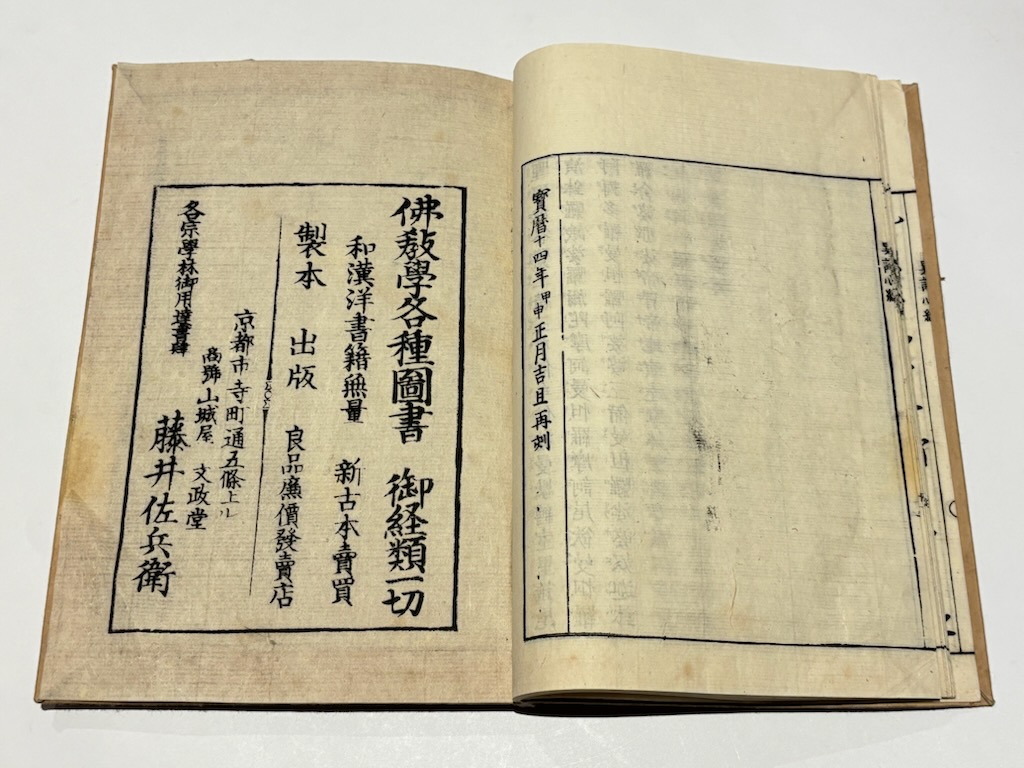 寳暦十四年甲申正月吉旦再刻
佛教學各種圖書　御経類一切
和漢洋書籍無量　新古本賣買
製本　出版　良品廉價發賣店
京都市寺町通五條上ル
商號山城屋　文政堂
藤井佐兵衛
各宗學林御用達書肆